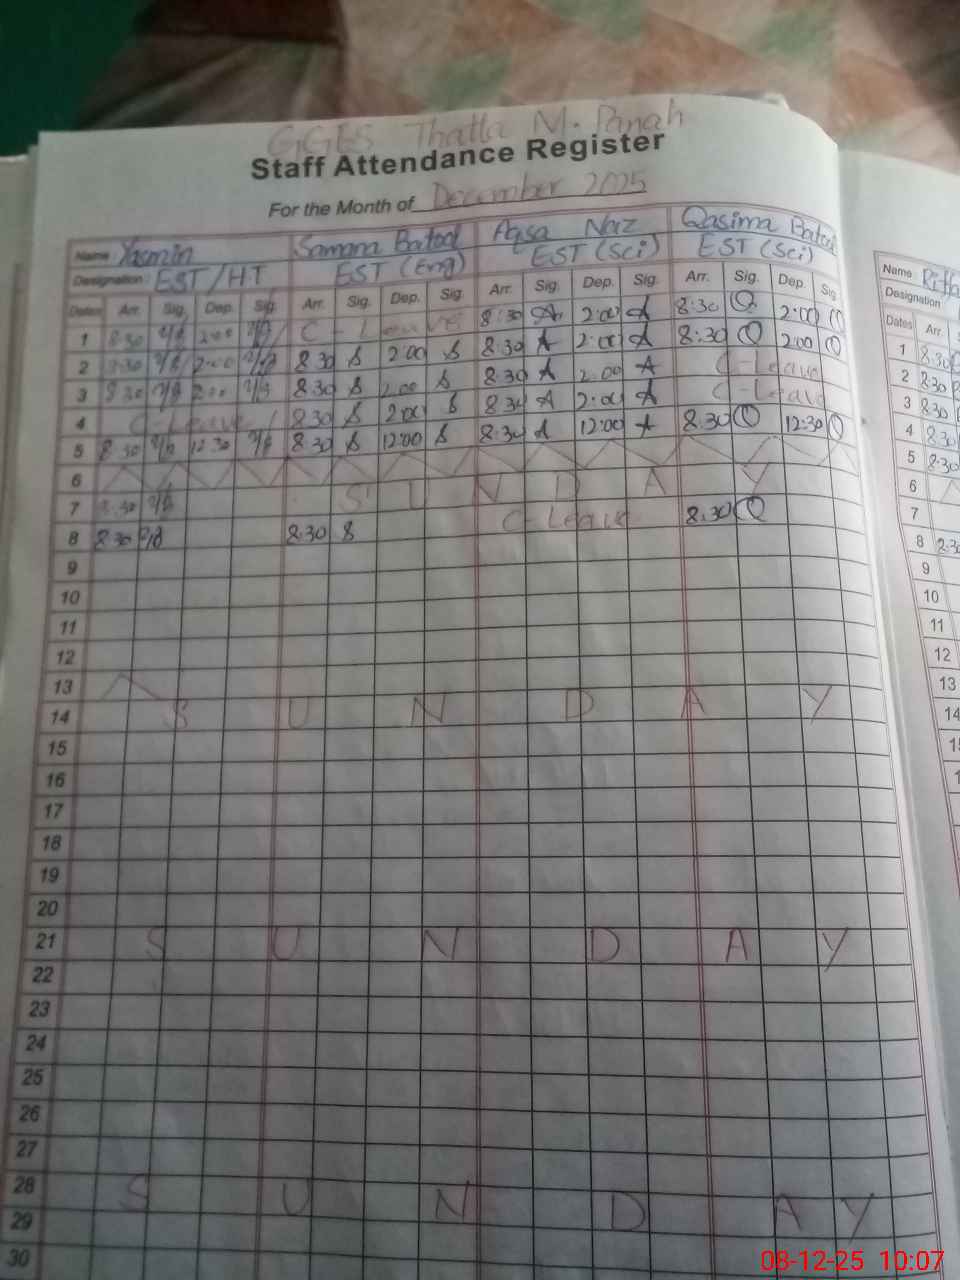 GGES Thatta M. Panah
Staff Attendance Register
For the Month of December 2025
Name: Yasmin Samana Batool Aqsa Naz Qasima Batool
Designation: EST/H.T EST (Eng) EST (Sci) EST (Sci)
Dates Arr. Sig. Dep. Sig. Arr. Sig. Dep. Sig. Arr. Sig. Dep. Sig. Arr. Sig. Dep. Sig.
1 8:30 2:00 C-Leave 8:30 A 2:00 A 8:30 Q 2:00 Q
2 8:30 2:00 8:30 S 2:00 S 8:30 A 2:00 A 8:30 Q 2:00 Q
3 8:30 2:00 8:30 S 2:00 S 8:30 A 2:00 A C-Leave
4 C-Leave 8:30 S 2:00 S 8:30 A 2:00 A C-Leave
5 8:30 12:30 8:30 S 12:00 S 8:30 A 12:00 A 8:30 Q 12:30 Q
6
7 8:30 S U N D A Y
8 8:30 8:30 S C-Leave 8:30 Q
9
10
11
12
13
14 S U N D A Y
15
16
17
18
19
20
21 S U N D A Y
22
23
24
25
26
27
28 S U N D A Y
29
30
Name:
Designation
Dates Arr.
1 8:30
2 8:30
3 8:30
4 8:30
5 8:30
6
7
8 8:30
9
10
11
12
13
14
08-12-25 10:07